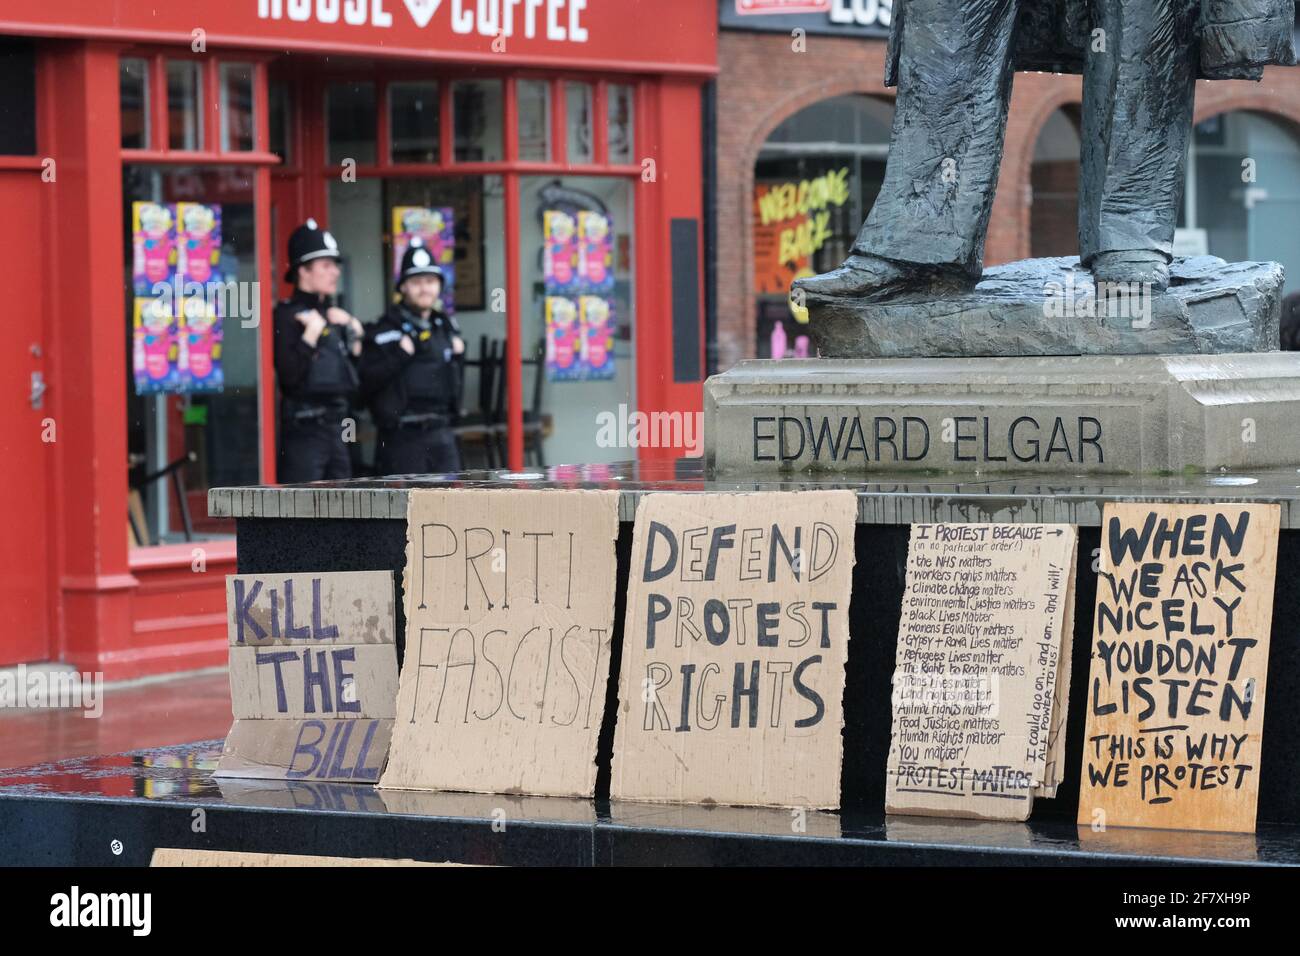 HOUSE COFFEE
LOS
WELCOME
BACK
EDWARD ELGAR
KILL
THE
BILL
PRITI
FASCIST
DEFEND
PROTEST
RIGHTS
I PROTEST BECAUSE →
(in no particular order!)
• the NHS matters
• workers rights matters
• Climate change matters
• environmental justice matters
• Black Lives Matter
• Womens Equality matters
• Gypsy + Roma Lives matter
• Refugees Lives matter
• The Right to Roam matters
• Trans Lives matter
• Land rights matter
• Animal rights matter
• Food Justice matters
• Human Rights matter
• You matter!
PROTEST MATTERS
I could go on... and on... and on... and will!
ALL POWER TO US!
WHEN
WE ASK
NICELY
YOU DON'T
LISTEN
THIS IS WHY
WE PROTEST
alamy
Image ID: 2F7XH9P
www.alamy.com